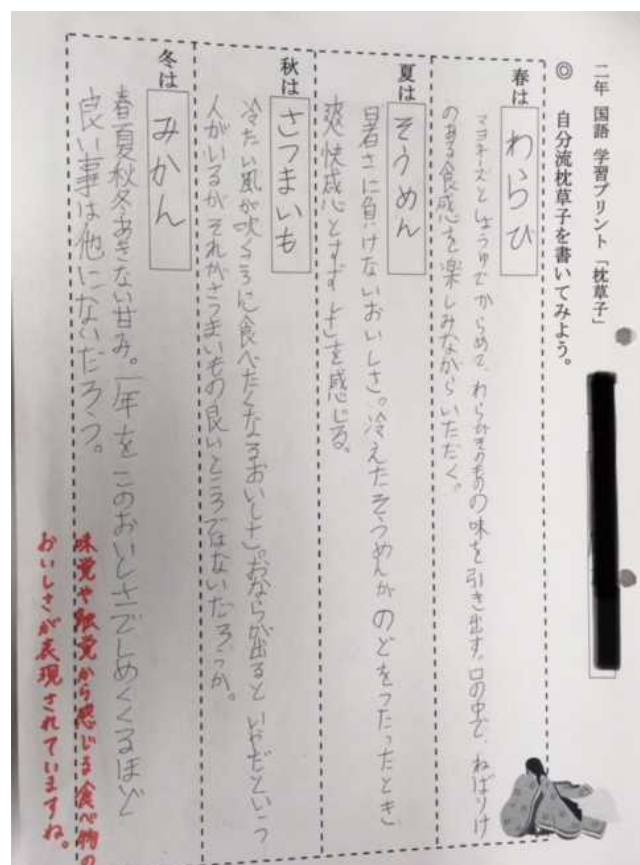 二年 国語 学習プリント「枕草子」
◎ 自分流枕草子を書いてみよう。
春は わらび
マヨネーズとしょうゆでからめて、わらびそのものの味を引き出す。口の中で、ねばりけ
のある食感を楽しみながらいただく。
夏は そうめん
暑さに負けないおいしさ。冷えたそうめんがのどをつたったとき、
爽快感とすずしさを感じる。
秋は さつまいも
冷たい風が吹くころに食べたくなるおいしさ。おならが出るといやだという
人がいるがそれがさつまいもの良いところではないだろうか。
冬は みかん
春夏秋冬あきない甘み。一年をこのおいしさでしめくくるほど
良い事は他にないだろう。
味覚や触覚から感じる食べ物の
おいしさが表現されていますね。